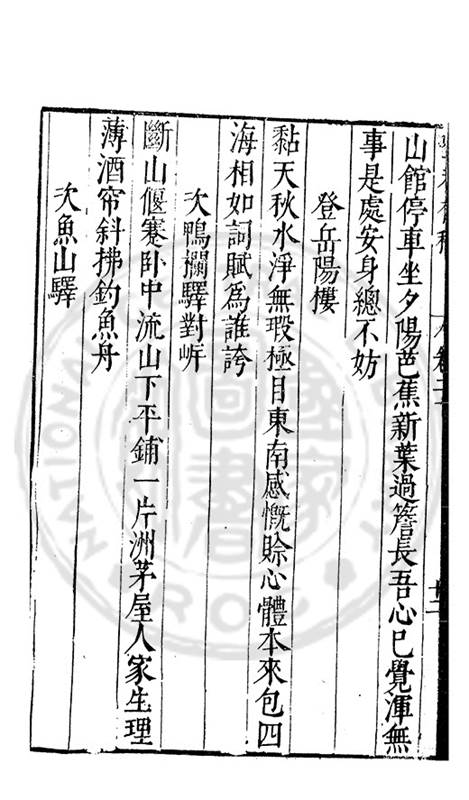 山館停車坐夕陽芭蕉新葉過簷長吾心已覺渾無
事是處安身總不妨
登岳陽樓
黏天秋水淨無瑕極目東南感慨賒心體本來包四
海相如詞賦爲誰誇
次鴨欄驛對岍
斷山偃蹇臥中流山下平鋪一片洲茅屋人家生理
薄酒帘斜拂釣魚舟
次魚山驛